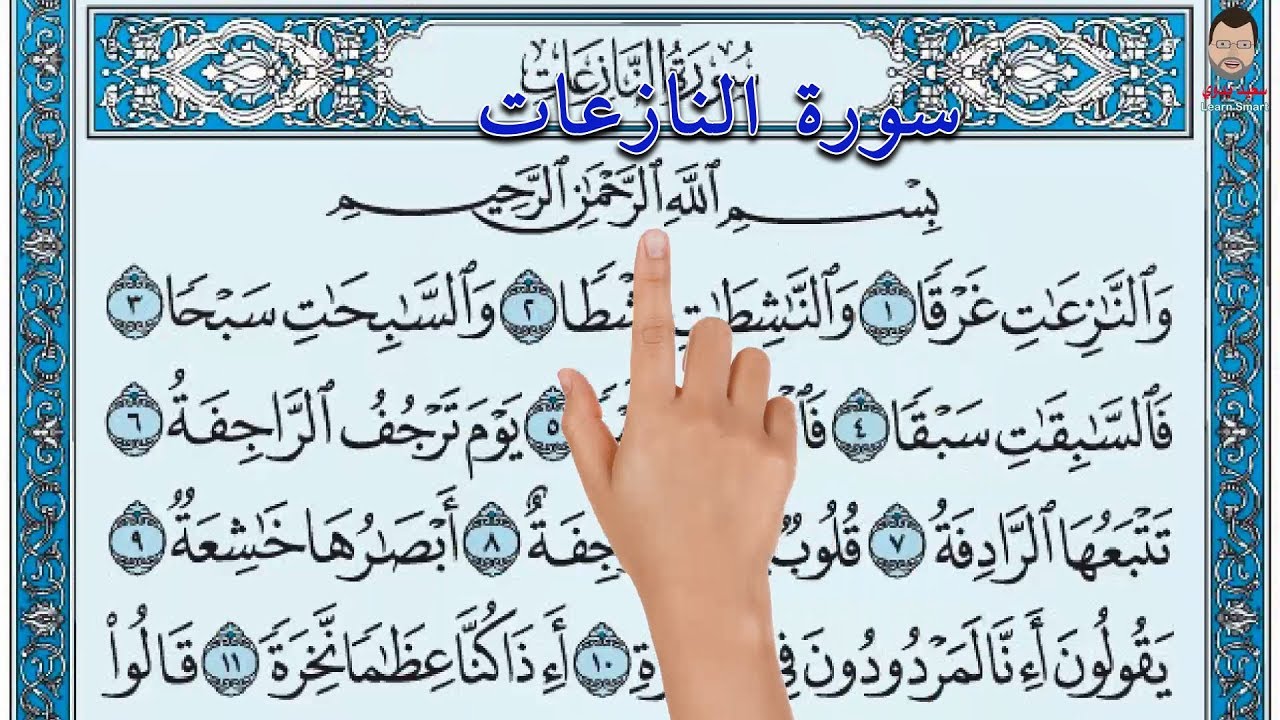 سُورَةُ النَّازِعَات
سورة النازعات
سعيد
Learn Smart
بِسْمِ ٱللَّهِ ٱلرَّحْمَٰنِ ٱلرَّحِيمِ
وَٱلنَّٰزِعَٰتِ غَرْقًا ١ وَٱلنَّٰشِطَٰتِ ٢ وَٱلسَّٰبِحَٰتِ سَبْحًا ٣
فَٱلسَّٰبِقَٰتِ سَبْقًا ٤ ٥ يَوْمَ تَرْجُفُ ٱلرَّاجِفَةُ ٦
تَتْبَعُهَا ٱلرَّادِفَةُ ٧ قُلُوبٌ ٨ أَبْصَٰرُهَا خَٰشِعَةٌ ٩
يَقُولُونَ أَءِنَّا لَمَرْدُودُونَ فِي ١٠ أَءِذَا كُنَّا عِظَٰمًا نَّخِرَةً ١١ قَالُوا۟